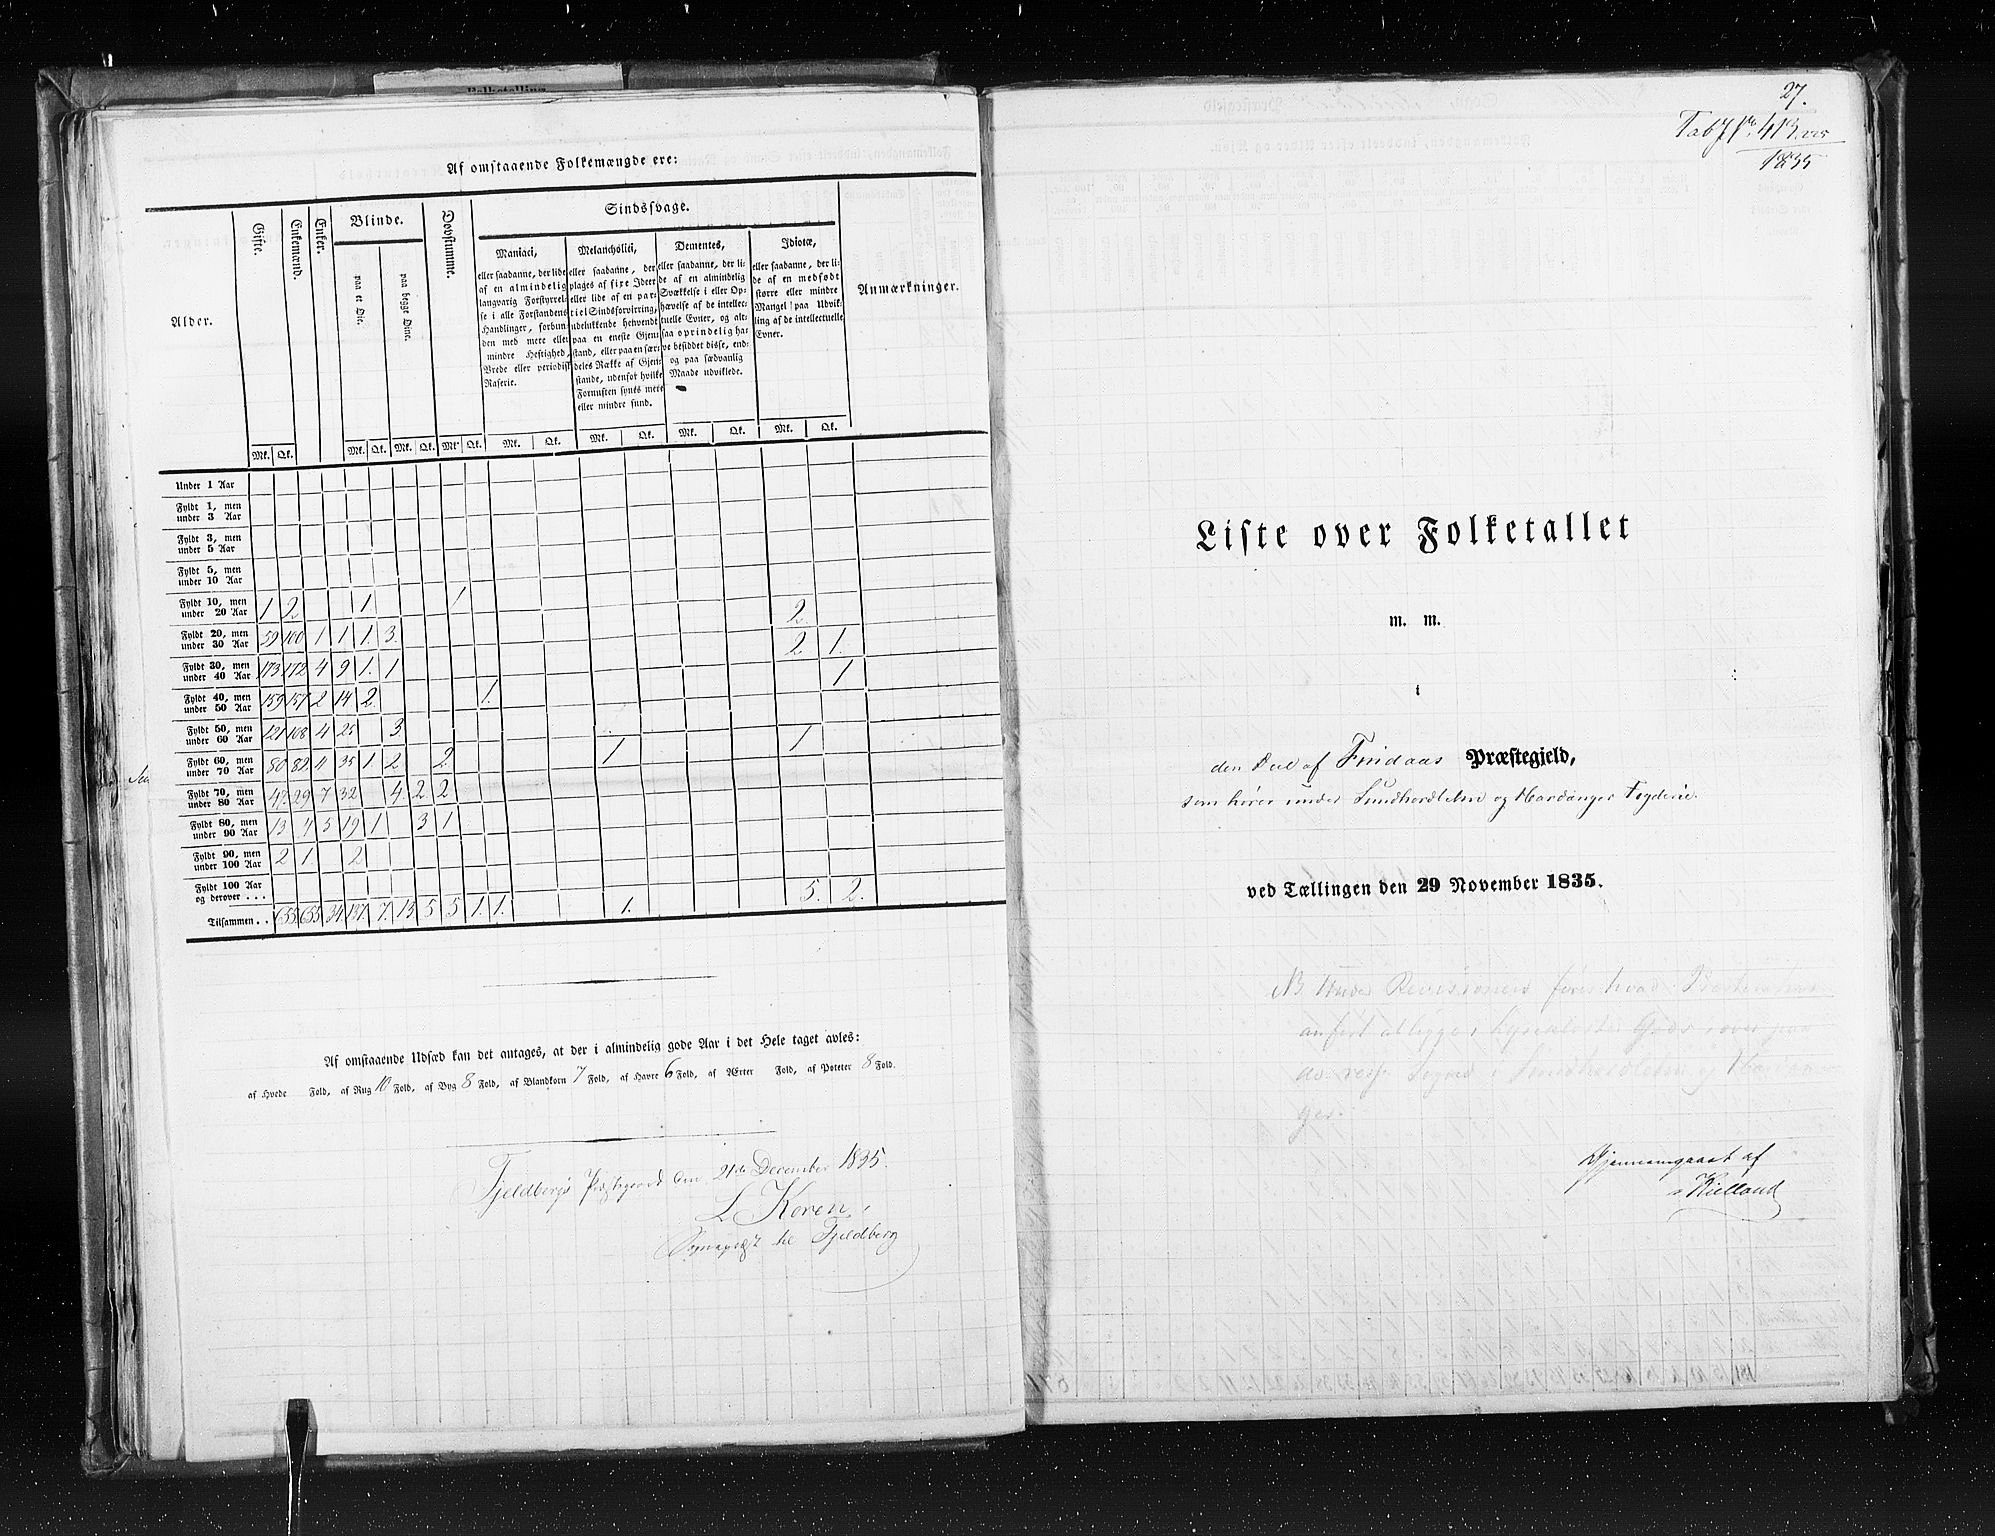 Folketelling
Af omstaaende Folkemængde ere:
Alder.
Gifte.
Enkemænd.
Enker.
Blinde.
paa et Øie.
paa begge Øine.
Døvstumme.
Sindssvage.
Maniaci,
eller saadanne, der lide
af en almindelig
langvarig Forstyrrel-
se i alle Forstandens
Handlinger, forbun-
den med mere eller
mindre Heftighed,
Vrede eller periodisk
Raserie.
Melancholici,
eller saadanne, der
plages af fixe Ideer
eller lide af en par-
tiel Sindsforvirring,
udelukkende henvendt
paa en eneste Gjen-
stand, eller paa en sær-
deles Række af Gjen-
stande, udenfor hvilke
Fornuften synes mere
eller mindre sund.
Dementes,
eller saadanne, der li-
de af en almindelig
Svækkelse i eller Op-
hævelse af de intellec-
tuelle Evner, og alt-
saa oprindelig ha-
ve besiddet disse, end-
og paa sædvanlig
Maade udviklede.
Idiotæ,
eller saadanne, der li-
de af en medfødt
større eller mindre
Mangel paa Udvik-
ling af de intellectuelle
Evner.
Anmærkninger.
Mk. Qk. Mk. Qk. Mk. Qk. Mk. Qk. Mk. Qk. Mk. Qk. Mk. Qk. Mk. Qk.
Under 1 Aar
Fyldt 1, men
under 3 Aar
Fyldt 3, men
under 5 Aar
Fyldt 5, men
under 10 Aar
Fyldt 10, men
under 20 Aar 1 2 1. 1 2
Fyldt 20, men
under 30 Aar 59 100 1 1 1. 3. 2 1.
Fyldt 30, men
under 40 Aar 173 172 4 9 1. 1 1
Fyldt 40, men
under 50 Aar 159 157 2 14 2. 1.
Fyldt 50, men
under 60 Aar 121 108 4 25 3 1
Fyldt 60, men
under 70 Aar 80 82 11 35 1 2 2 1
Fyldt 70, men
under 80 Aar 47 29 7 32 4 2 2
Fyldt 80, men
under 90 Aar 13 4 5 19 1 3 1
Fyldt 90, men
under 100 Aar 2 1 2
Fyldt 100 Aar
og derover . . .
Tilsammen . . 655 655 34 137 7. 13 5 5 1. 1. 1. 5. 2.
Af omstaaende Udsæd kan det antages, at der i almindelig gode Aar i det Hele taget avles:
af Hvede Fold, af Rug 10 Fold, af Byg 8 Fold, af Blandkorn 7 Fold, af Havre 6 Fold, af Ærter Fold, af Poteter 8 Fold.
Fjeldbergs Præstegaard den 21de December 1835.
L Koren,
Sognepræst til Fjeldberg
27.
413
1835
Liste over Folketallet
m. m.
i
den Deel af Findaas Præstegjeld,
som hører under Sundhordlehn og Hardanger Fogderie.
ved Tællingen den 29 November 1835.
NB Under Revisionen
anført at ligge i Lyse Closters Gods, over paa
Sogne i Sundhordlehn og Hardan-
ger.
Gjennemgaaet af
Kielland